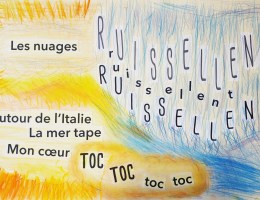 Les nuages
RUISSELLEN
ruissellent
RUISSELLEN
utour de l'Italie
La mer tape
Mon cœur TOC TOC toc toc